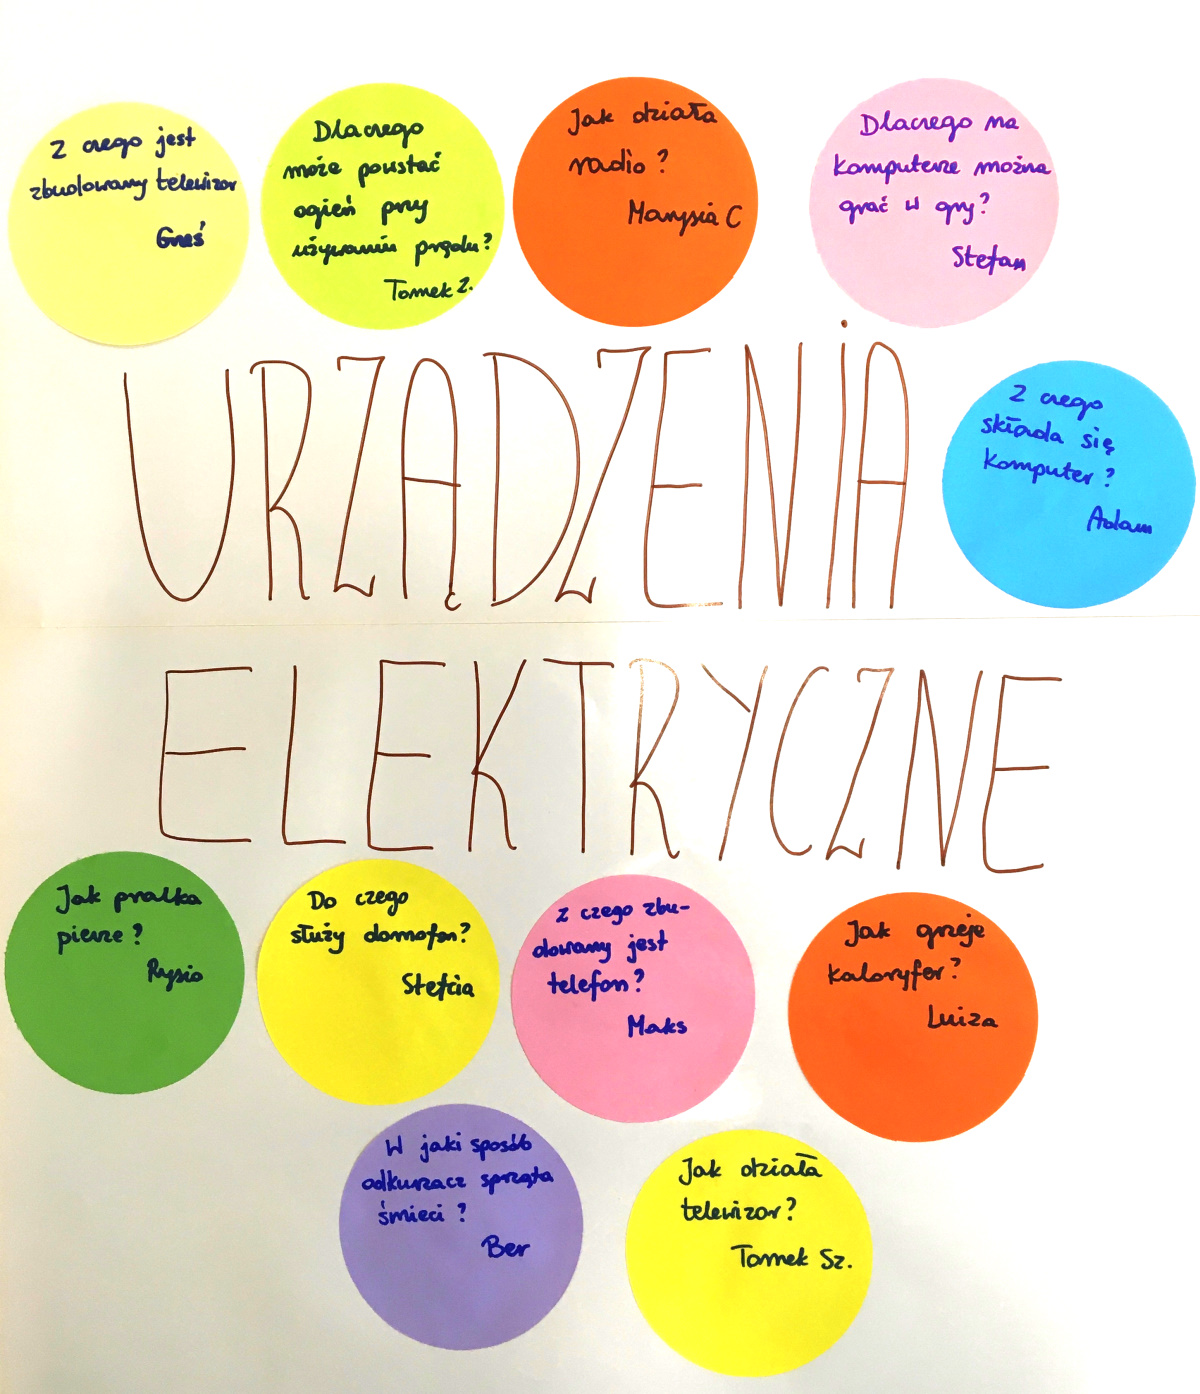 Z czego jest
zbudowany telewizor
Grześ
Dlaczego
może powstać
ogień przy
używaniu prądu?
Tomek Z.
Jak działa
radio?
Marysia C
Dlaczego na
komputerze można
grać w gry?
Stefan
URZĄDZENiA
Z czego
składa się
komputer?
Adam
ELEKTRYCZNE
Jak pralka
pierze?
Rysio
Do czego
służy domofon?
Stefcia
Z czego zbu-
dowany jest
telefon?
Maks
Jak grzeje
kaloryfer?
Luiza
W jaki sposób
odkurzacz sprząta
śmieci?
Ber
Jak działa
telewizor?
Tomek Sz.